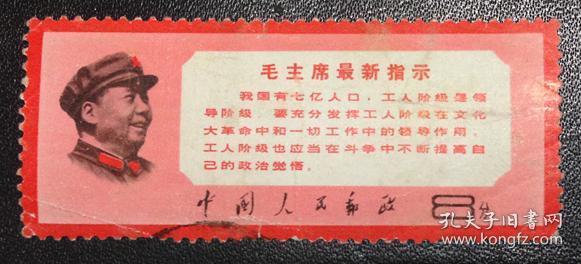 毛主席最新指示
我国有七亿人口,工人阶级是领
导阶级 要充分发挥工人阶级在文化
大革命中和一切工作中的领导作用.
工人阶级也应当在斗争中不断提高自
己的政治觉悟。
中国人民邮政 8分
孔夫子旧书网
kongfz.com